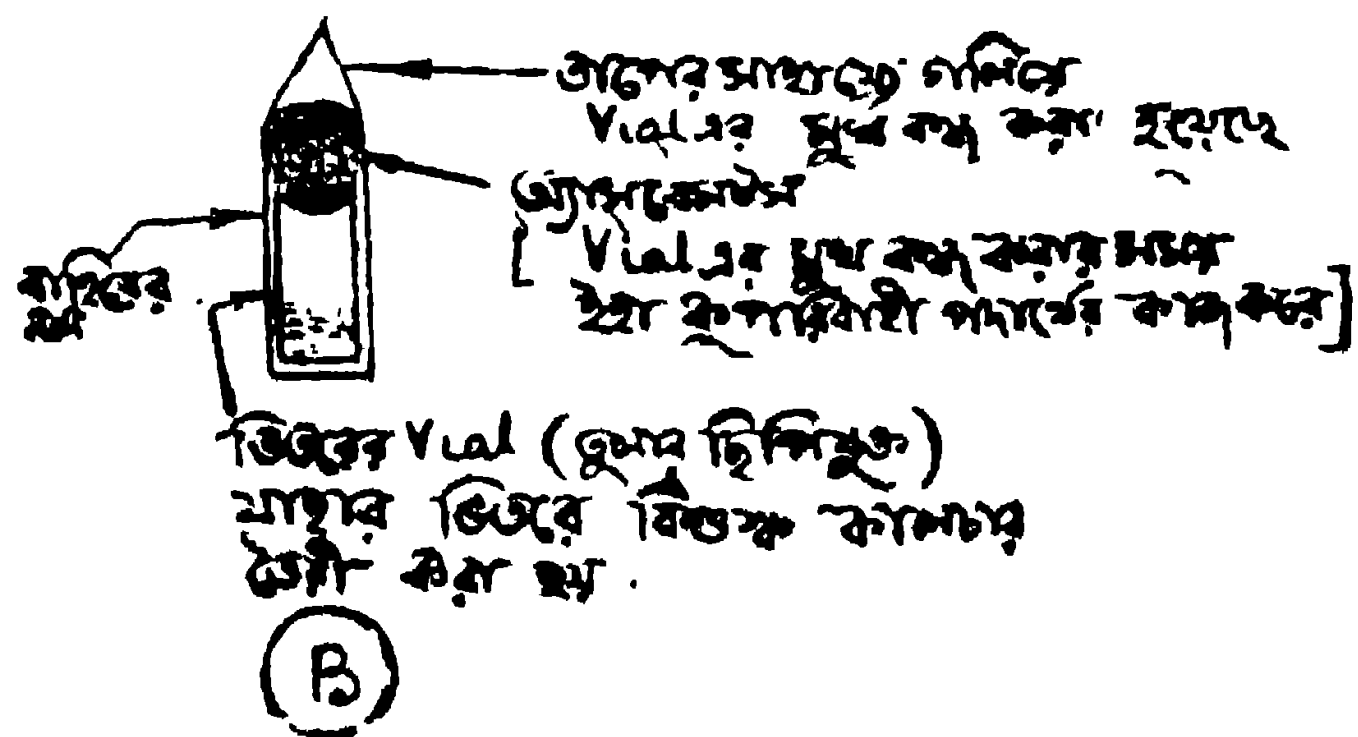 তাপের সাহায্যে গলিয়ে
Vial এর মুখ বন্ধ করা হয়েছে
অ্যাসবেসটস
[ Vial এর মুখ বন্ধ করার সময়
ইহা কুপরিবাহী পদার্থের কাজ করে ]
বাহিরের
ভিতরের Vial (তুলার ছিপিযুক্ত)
যাহার ভিতরে বিশুষ্ক কালচার
তৈরী করা হয়.
B